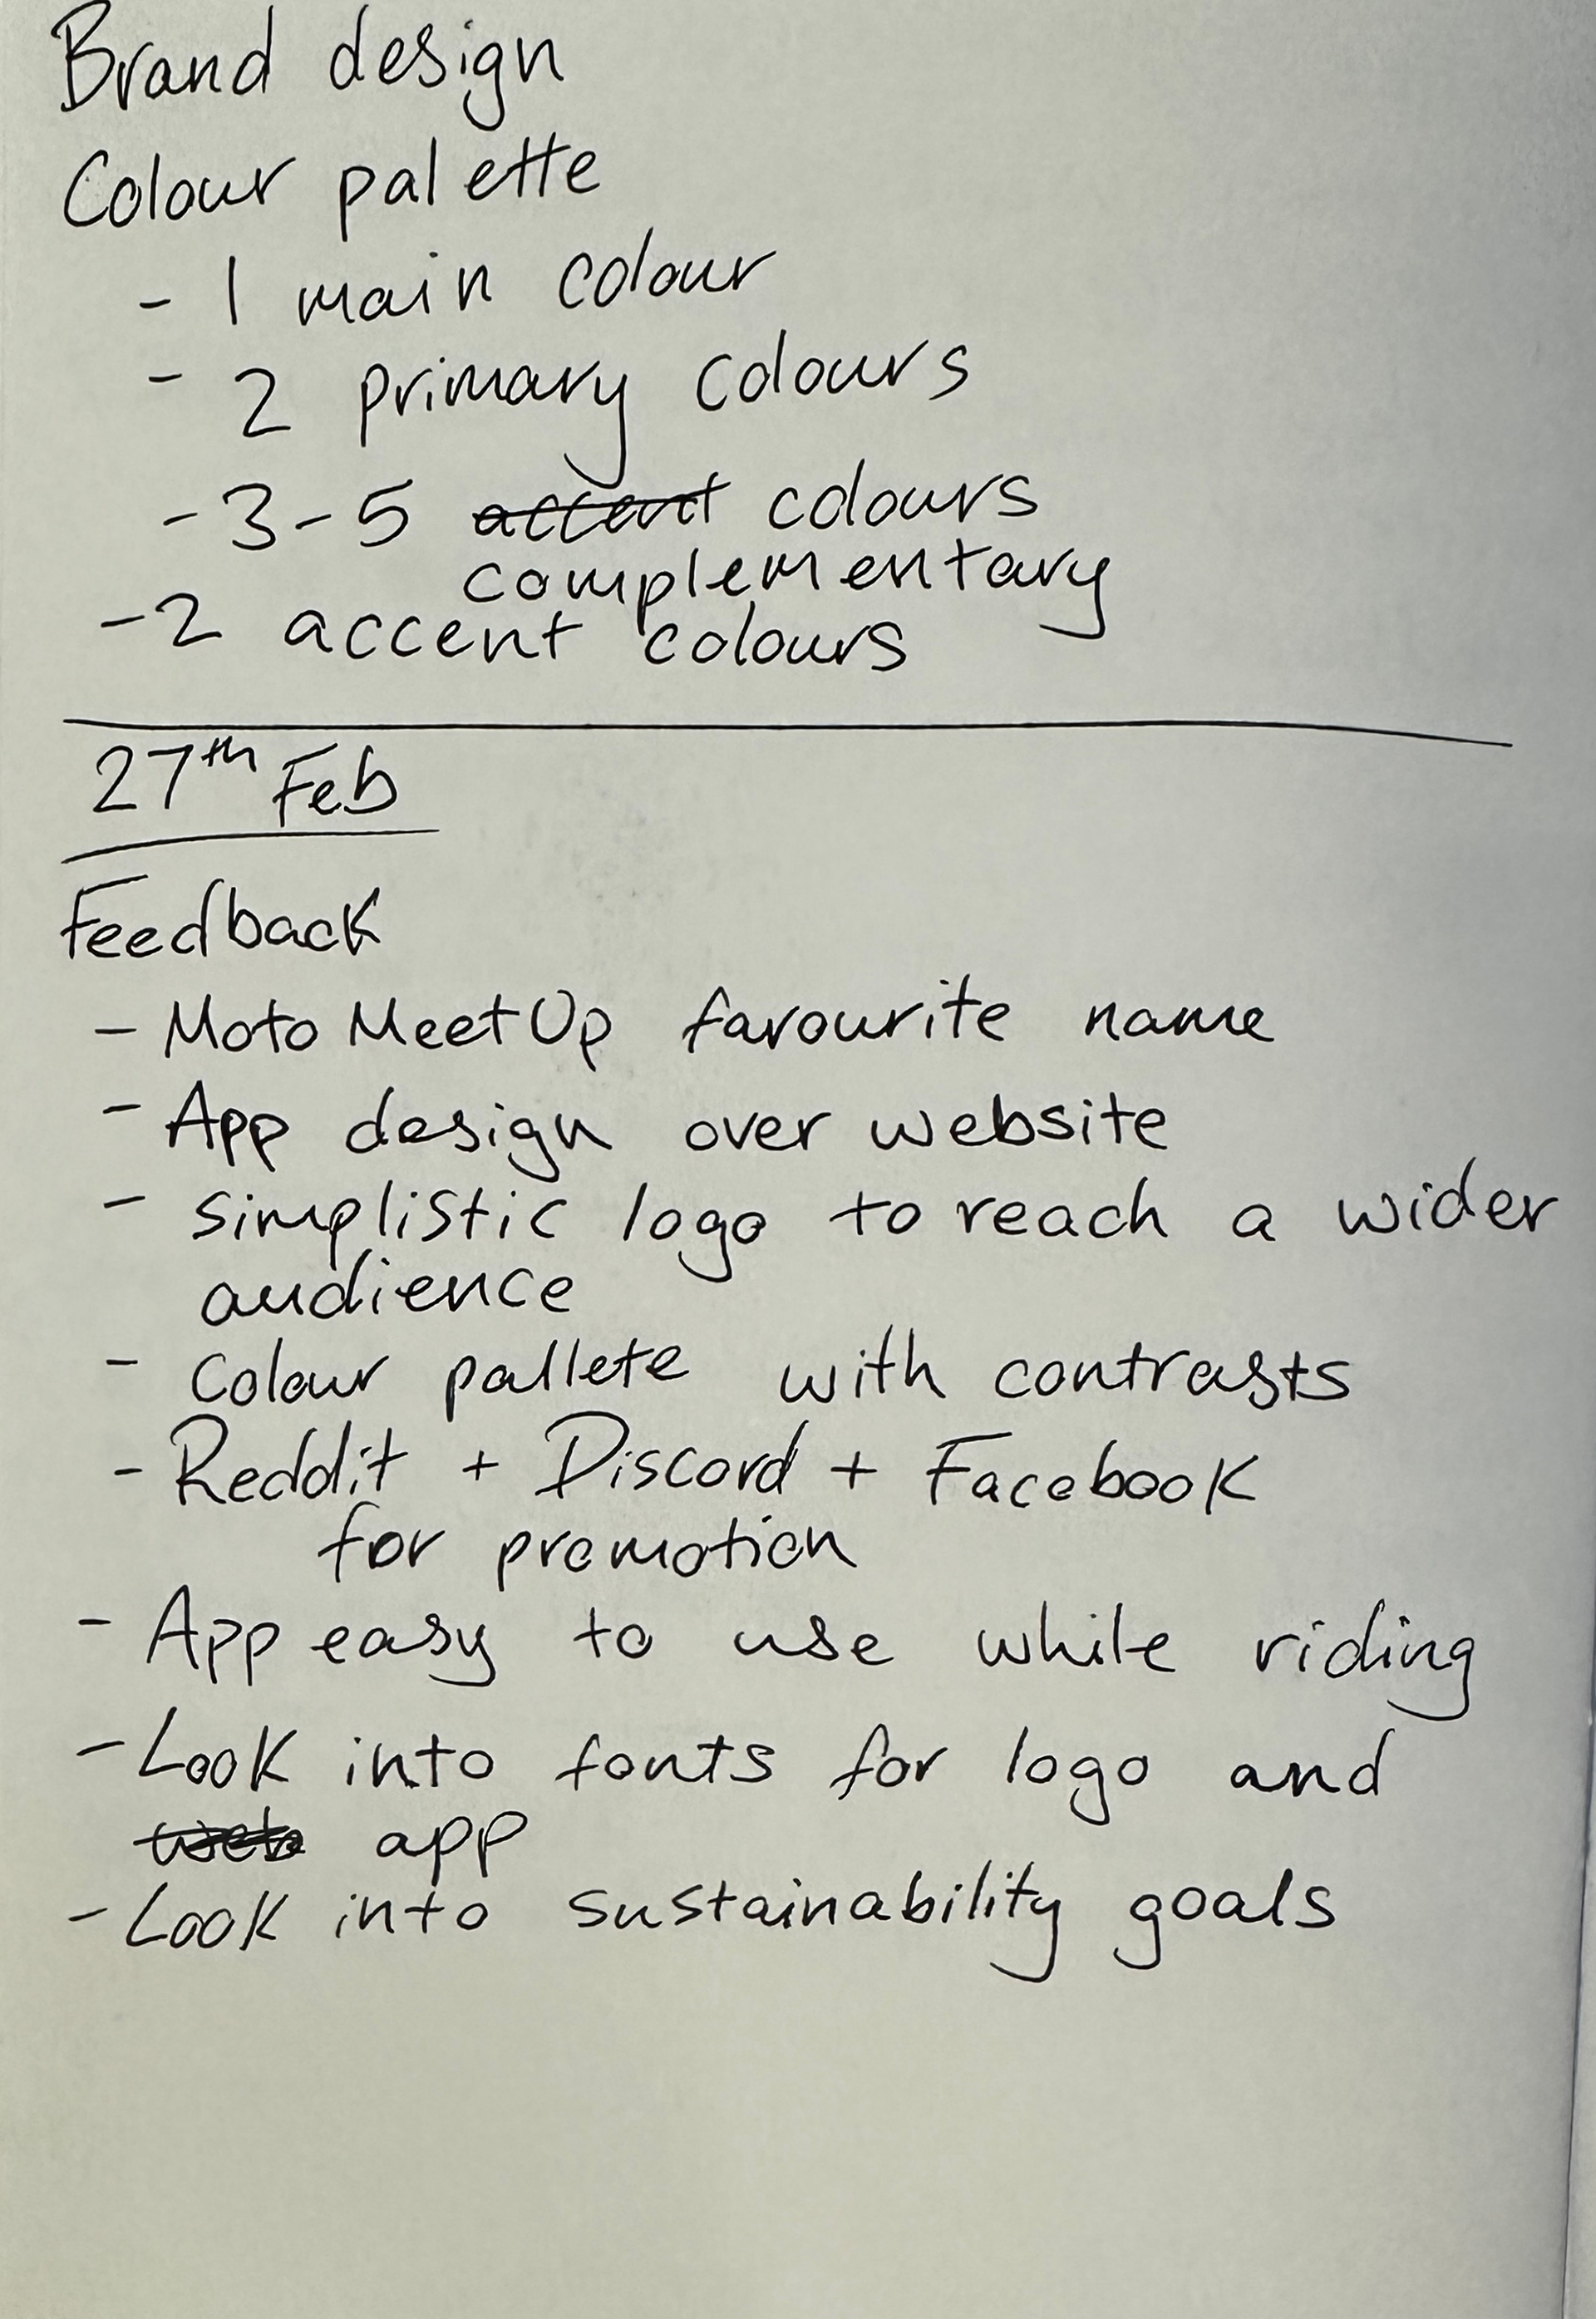 Brand design
Colour palette
- 1 main colour
- 2 primary colours
- 3-5 accent colours
complementary
- 2 accent colours
27th Feb
Feedback
- Moto MeetUp favourite name
- App design over website
- simplistic logo to reach a wider
audience
- Colour pallete with contrasts
- Reddit + Discord + Facebook
for promotion
- App easy to use while riding
- Look into fonts for logo and
web app
- Look into sustainability goals